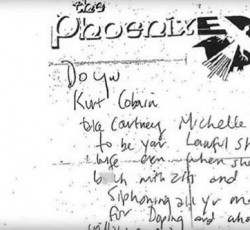 the
Phoenix
Do you
Kurt Cobain
take Courtney Michelle
to be your Lawful sh
wife even when she
b ch with zits and
siphoning all yr mo
for Doping and who